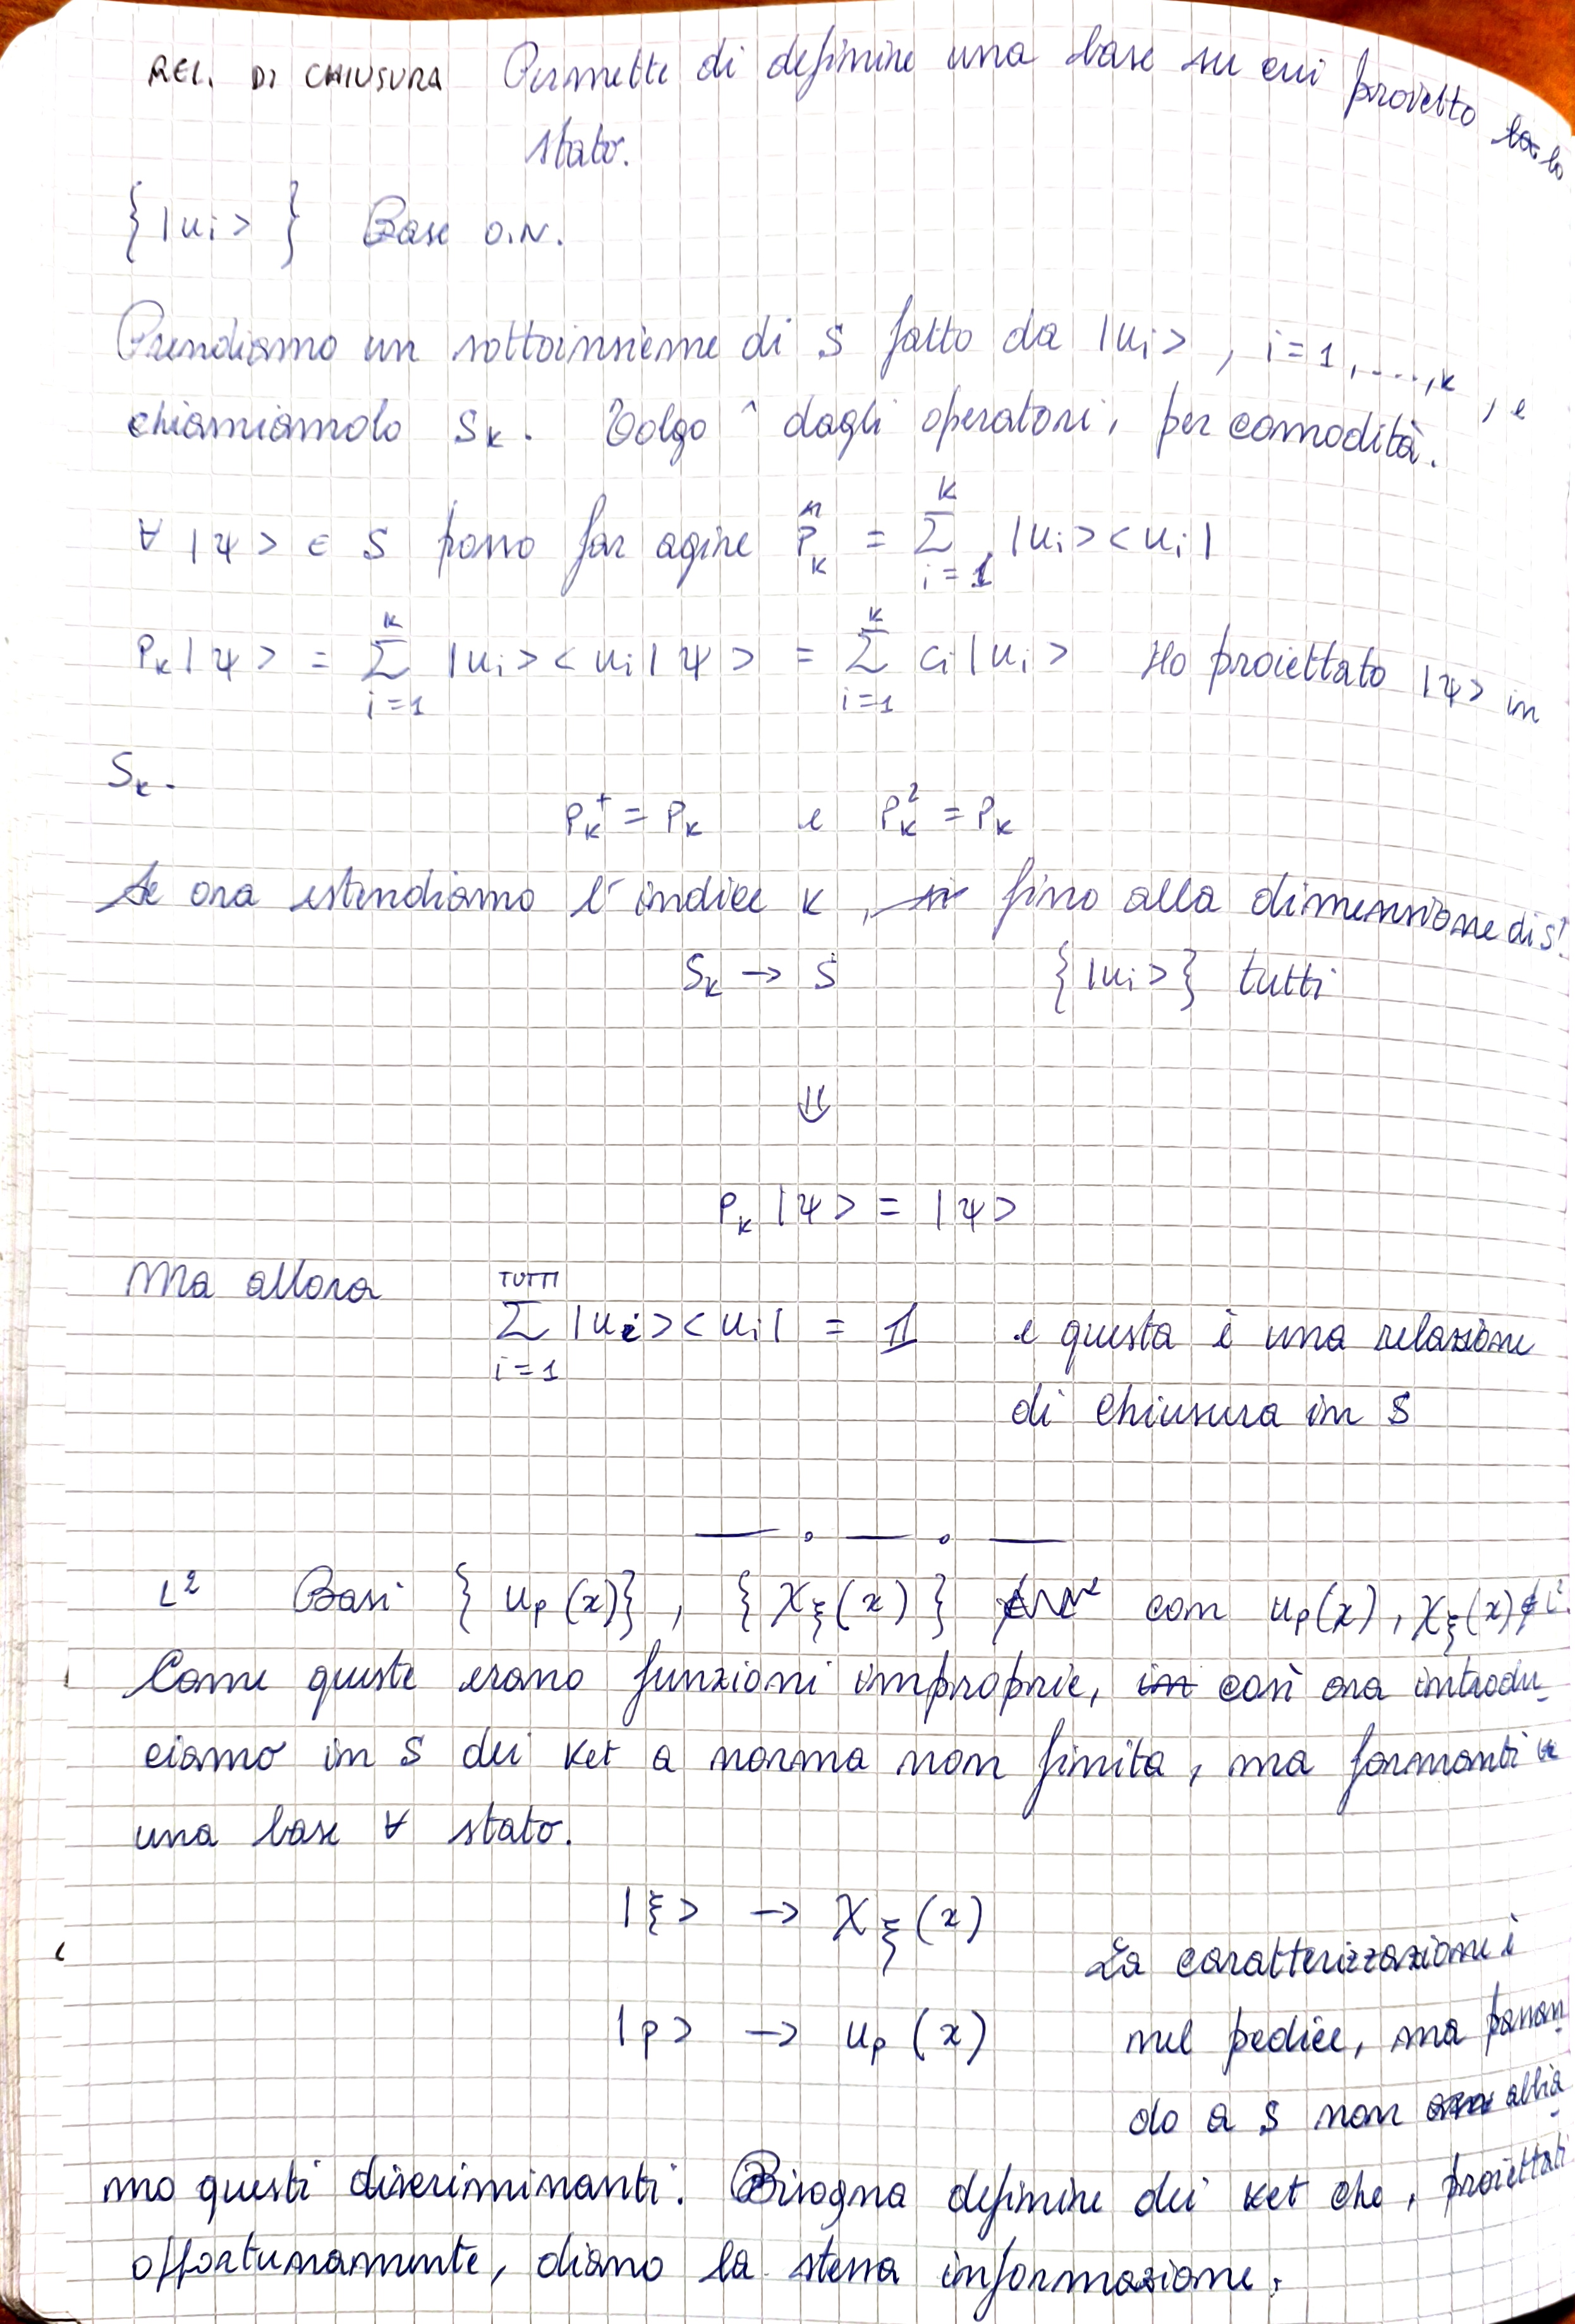 REL. DI CHIUSURA Permette di definire una base su cui proietto lo
stato.
{|uᵢ>} Base O.N.
Prendiamo un sottoinsieme di S fatto da |uᵢ>, i=1,....,k, e
chiamiamolo Sₖ. Tolgo ^ dagli operatori, per comodità.
∀ |ψ> ∈ S posso far agire P̂ₖ = Σᵢ₌₁ᴷ |uᵢ><uᵢ|
Pₖ|ψ> = Σᵢ₌₁ᴷ |uᵢ><uᵢ|ψ> = Σᵢ₌₁ᴷ cᵢ|uᵢ> Ho proiettato |ψ> in
Sₖ.
Pₖ⁺ = Pₖ e Pₖ² = Pₖ
Se ora estendiamo l'indice k, fino alla dimensione di S:
Sₖ → S {|uᵢ>} tutti
⇓
Pₖ|ψ> = |ψ>
Ma allora Σᵢ₌₁ᵀᵁᵀᵀᴵ |uᵢ><uᵢ| = 𝟙 e questa è una relazione
di chiusura in S
— . — . —
L² Basi {uₚ(x)}, {χ_ξ(x)} con uₚ(x), χ_ξ(x) ∉ L².
Come queste erano funzioni improprie, così ora introdu-
ciamo in S dei ket a norma non finita, ma formanti
una base ∀ stato.
|ξ> → χ_ξ(x)
La caratterizzazione è
|p> → uₚ(x) nel pedice, ma passan-
do a S non abbia-
mo questi discriminanti. Bisogna definire dei ket che, proiettati
opportunamente, diano la stessa informazione.